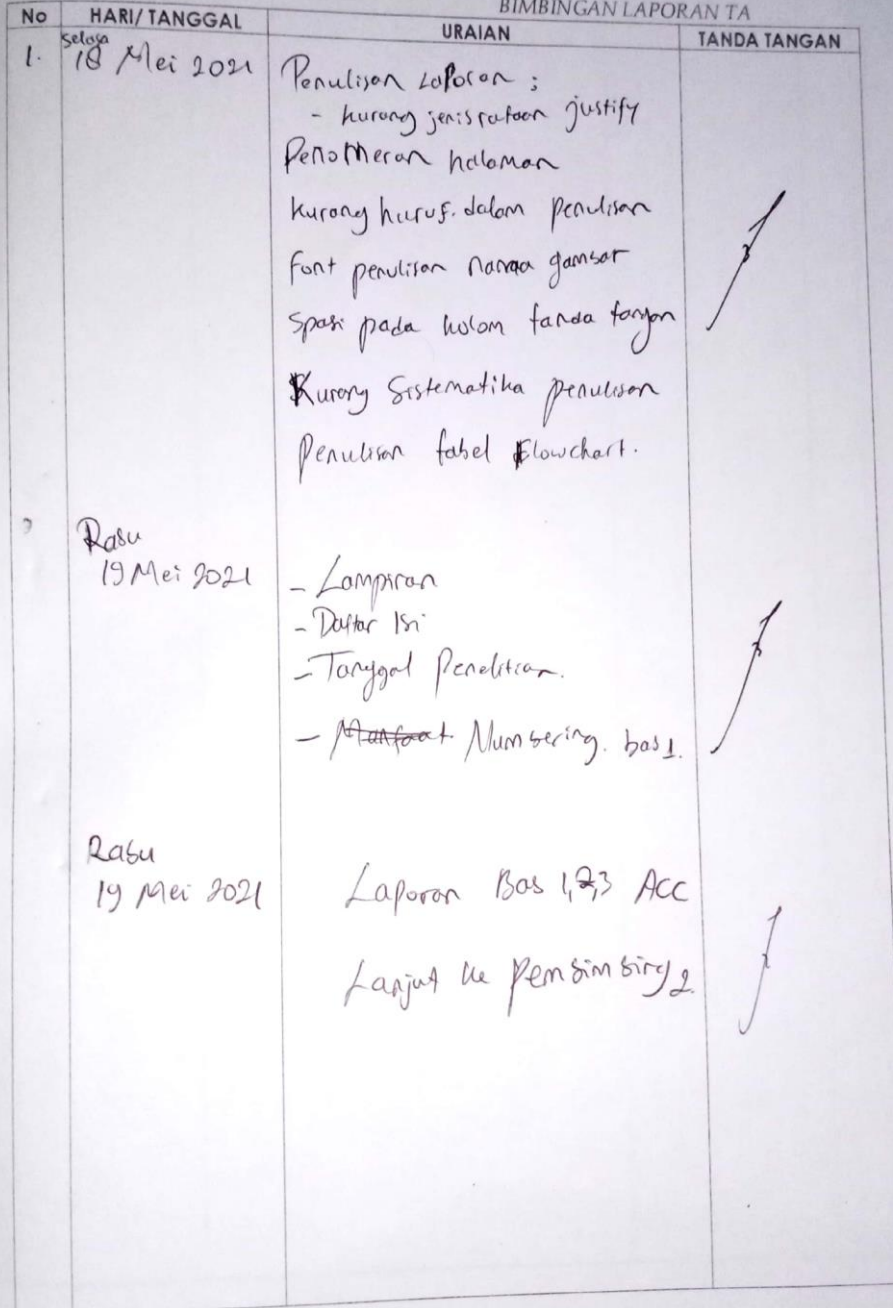 BIMBINGAN LAPORAN TA
No HARI/ TANGGAL URAIAN TANDA TANGAN
1. Selasa
18 Mei 2021 Penulisan Laporan ;
- kurang jenis rataan justify
Penomeran halaman
kurang huruf. dalam penulisan
font penulisan nama gambar
Spasi pada kolom tanda tangan
Kurang Sistematika penulisan
Penulisan tabel Flowchart.
Rabu
19 Mei 2021 - Lampiran
- Daftar Isi
- Tanggal Penelitian.
- Manfaat Numbering. bab 1.
Rabu
19 Mei 2021 Laporan Bab 1,2,3 Acc
Lanjut ke pembimbing 2.